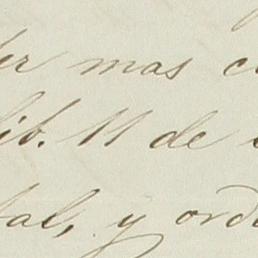 er mas
lib. 11 de
tal, y ord